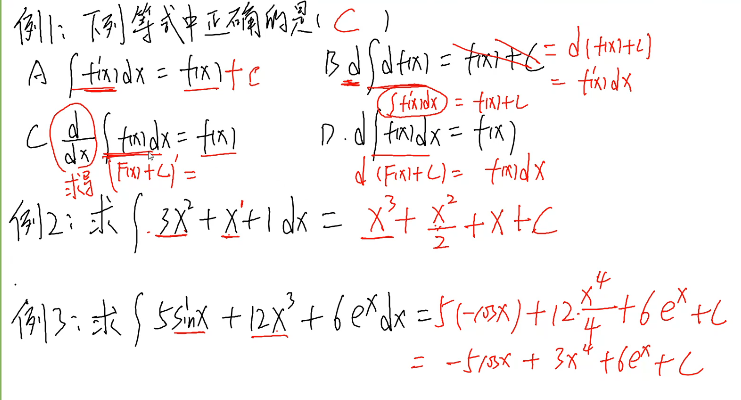 例1: 下列等式中正确的是( C )
A ∫f'(x)dx = f(x)+C
B d∫df(x) = f(x)+C = d(f(x)+C)
∫f'(x)dx = f(x)+C = f'(x)dx
C d/dx ∫f(x)dx = f(x)
D. d∫f(x)dx = f(x)
求导 (F(x)+C)' =
d(F(x)+C) = f(x)dx
例2: 求∫3x²+x'+1dx = x³+x²/2+x+C
例3: 求∫5sinx+12x³+6eˣdx = 5(-cosx)+12·x⁴/4+6eˣ+C
= -5cosx+3x⁴+6eˣ+C